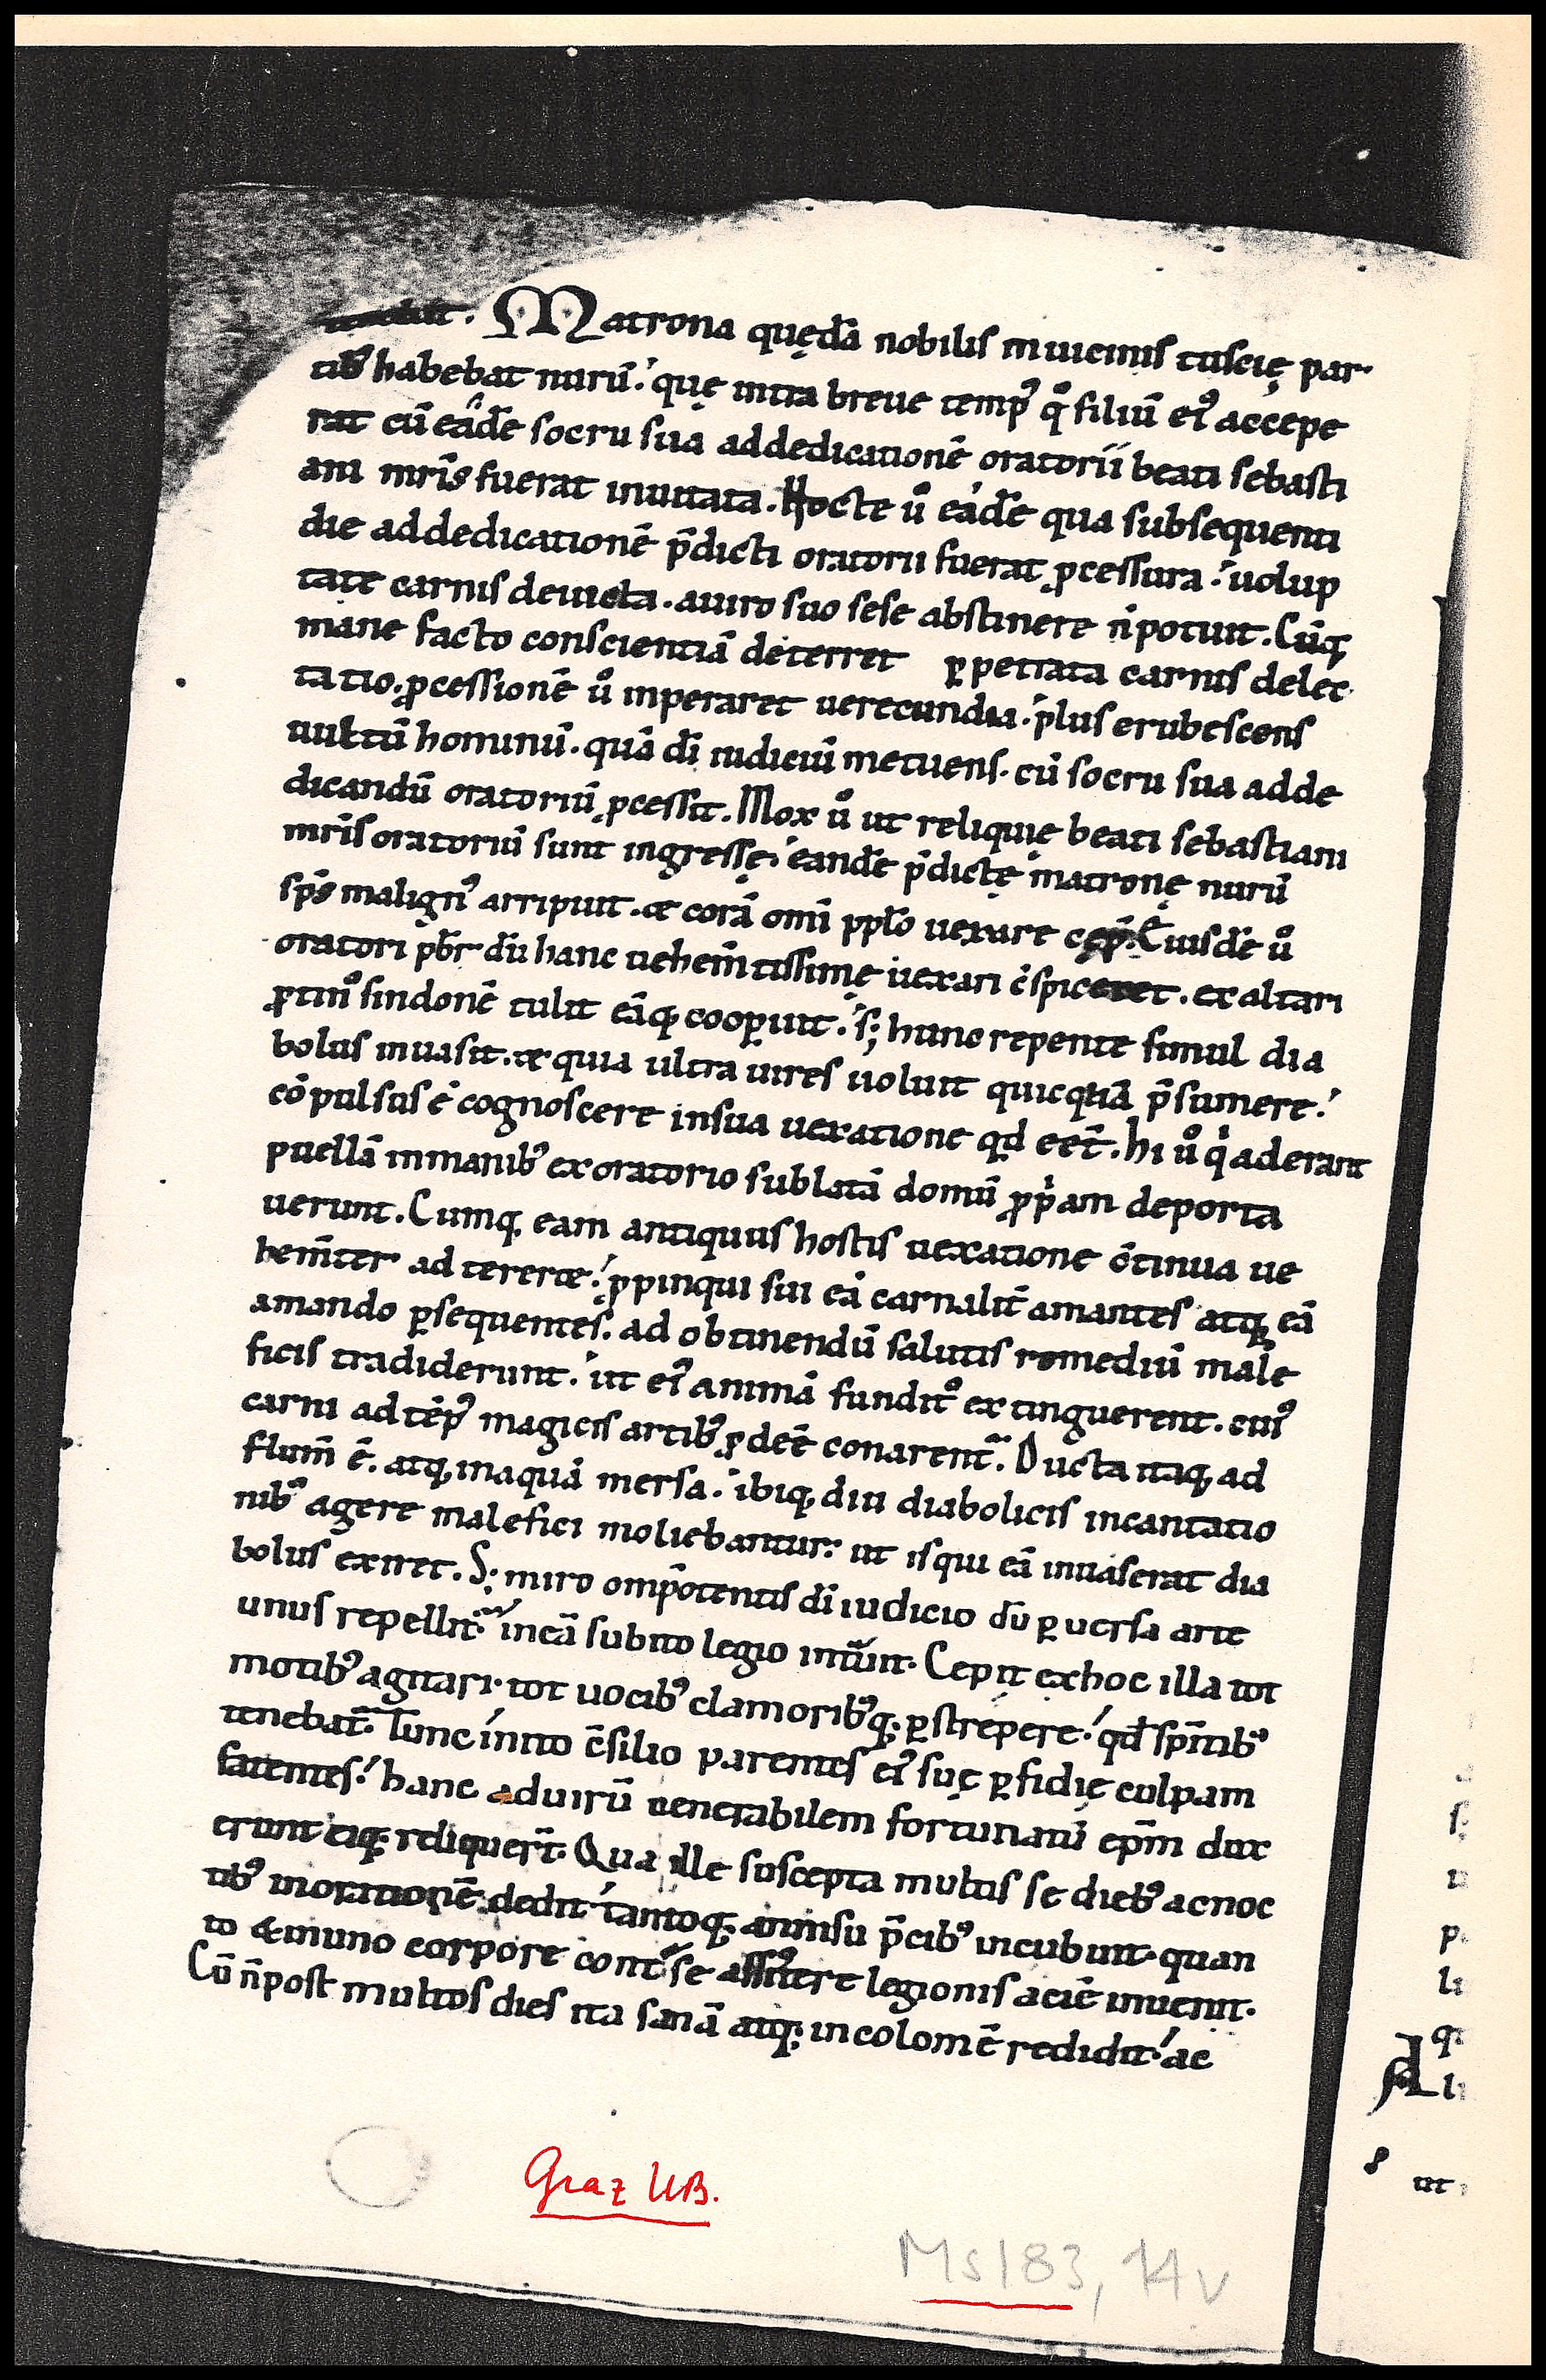 Matrona quędā nobilis in uicinis tuscię par-
tibꝰ habebat nurū. quę intra breue tempꝰ qͦ filiū eiꝰ accepe
rat cū eādē socru sua ad dedicationē oratorii beati sebasti
ani mr̄is fuerat inuitata. Nocte ůͦ eādē qua subsequenti
die ad dedicationē p̄dicti oratorii fuerat ꝓcessura. uolup
tate carnis deuicta. a uiro suo sese abstinere n̄ potuit. Cūq;
mane facto conscientiā deterret ꝑpetrata carnis delec
tatio. ꝓcessionē uͦ inperaret uerecundia. plus erubescens
uultū hominū. quā dī iudiciū metuens. cū socru sua ad de
dicandū oratoriū ꝓcessit. Mox uͦ ut reliquię beati sebastiani
mr̄is oratoriū sunt ingressę. eandē p̄dictę matronę nurū
sp̄s malignꝰ arripuit. & corā omī pplo uexare Eiusdē uͦ
oratori pb̄r dū hanc uehem̄tissimę uexari c̄spiceret. ex altari
ꝓtinꝰ sindonē tulit eāq; cooꝑuit. s; hunc repente simul dia
bolus inuasit. & quia ultra uires uoluit quicquā p̄sumere.
cōpulsus ē cognoscere in sua uexatione qd eēt. hi uͦ qͥ aderant
puellā in manibꝰ ex oratorio sublatā domū ꝓpͥam deporta
uerunt. Cumq; eam antiquus hostis uexatione c̄tinua ue
hem̄ter ad tereret. ꝓpinqui sui eā carnalit̄ amantes atq; eā
amando ꝑsequentes. ad obtinendū salutis romediū male
ficis tradiderunt. ut eiꝰ animā funditꝰ extinguerent. cuiꝰ
carni ad tēpꝰ magicis artibꝰ ꝓdeē conarent᷑. Ducta itaq; ad
flum̄ ē. atq; in aquā mersa. ibiq; diu diabolicis incantatio
nibꝰ agere malefici moliebantur. ut is qui eā inuaserat dia
bolus exiret. S; miro omp̄otentis dī iudicio dū ꝑuersa arte
unus repellit᷑. in eā subito legio int̄uit. Cepit ex hoc illa tot
motibꝰ agitari. tot uocibꝰ clamoribꝰq; ꝑstrepere. qđ sp̄itibꝰ
tenebat᷑. Tunc inito c̄silio parentes eiꝰ suę ꝑfidię culpam
fatentes. hanc ad uirū uenerabilem fortunatū ep̄m dux
erunt eiq; reliquer̄t. Qua ille suscepta multis se diebꝰ ac noc
tibꝰ in orationē dedit. tantoq; annisu p̄cibꝰ incubuit. quan
to & in uno corpore cont̄ se assistere legionis aciē inuenit.
Cū n̄ post multos dies ita sanā atq; incolomē redidit. ac
Graz UB.
Ms 183, 14v